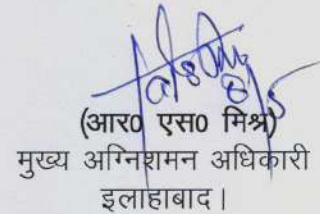 (आर0 एस0 मिश्र)
मुख्य अग्निशमन अधिकारी
इलाहाबाद।